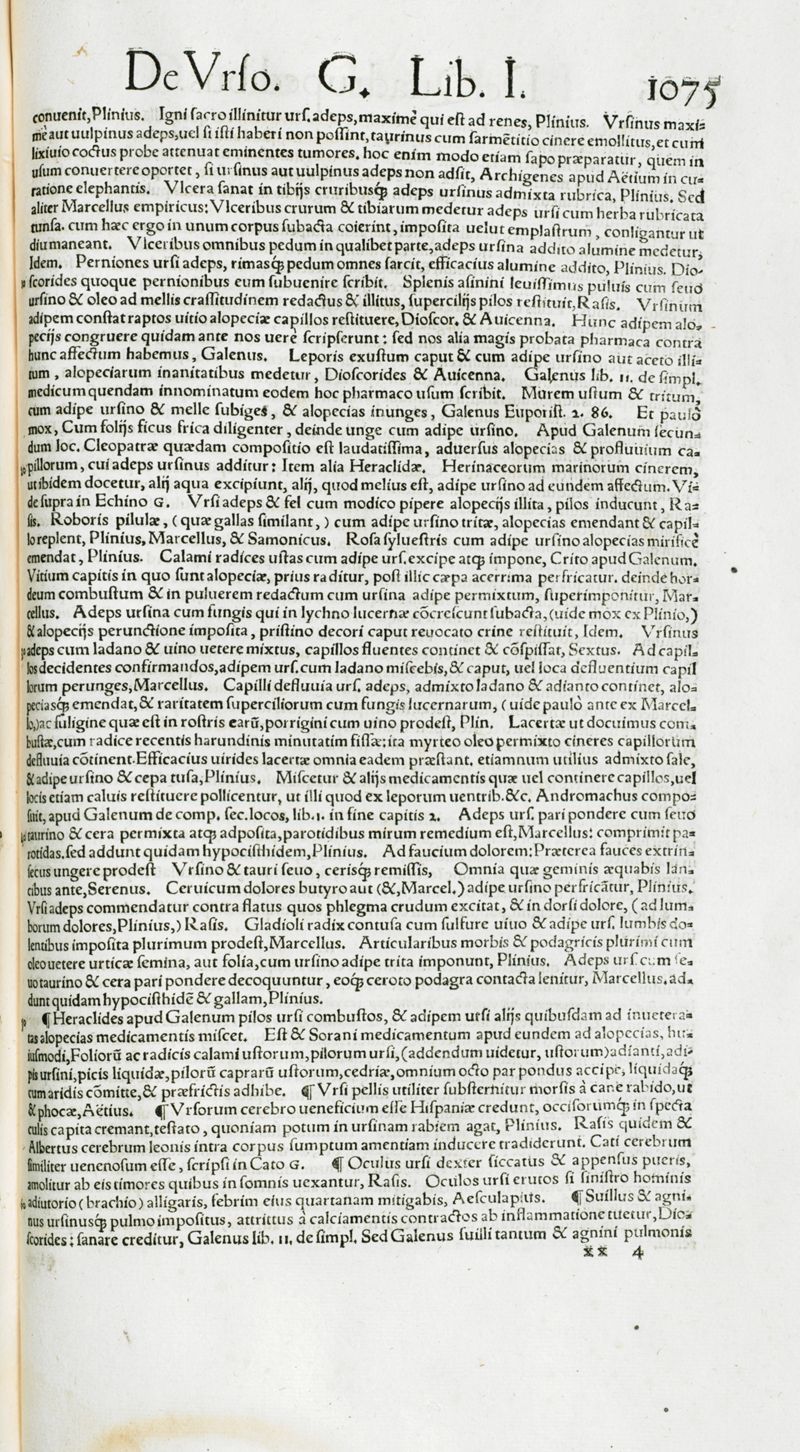 De Vrſo. G. Lib. I. 1075
conuenit, Plinius. Igni ſacro illinitur urſ. adeps, maximè qui eſt ad renes, Plinius. Vrſinus maxi=
mè aut uulpinus adeps, uel ſi iſti haberi non poſſint, taurinus cum ſarmẽtitio cinere emollitus, et cum
lixiuio coctus probe attenuat eminentes tumores. hoc enim modo etiam ſapo præparatur, quem in
uſum conuertere oportet, ſi urſinus aut uulpinus adeps non adſit, Archigenes apud Aëtium in cu=
ratione elephantis. Vlcera ſanat in tibijs cruribusq́; adeps urſinus admixta rubrica, Plinius. Sed
aliter Marcellus empiricus: Vlceribus crurum & tibiarum medetur adeps urſi cum herba rubricata
tunſa. cum hæc ergo in unum corpus ſubacta coierint, impoſita uelut emplaſtrum, conligantur ut
diu maneant. Vlceribus omnibus pedum in qualibet parte, adeps urſina addito alumine medetur,
Idem. Perniones urſi adeps, rimasq́; pedum omnes ſarcit, efficacius alumine addito, Plinius. Dio=
ſcorides quoque pernionibus eum ſubuenire ſcribit. Splenis aſinini leuiſſimus puluis cum ſeuo
urſino & oleo ad mellis craſſitudinem redactus & illitus, ſupercilijs pilos reſtituit, Raſis. Vrſinum
adipem conſtat raptos uitio alopeciæ capillos reſtituere, Dioſcor. & Auicenna. Hunc adipem alo=
pecijs congruere quidam ante nos uerè ſcripſerunt: ſed nos alia magis probata pharmaca contra
hunc affectum habemus, Galenus. Leporis exuſtum caput & cum adipe urſino aut aceto illi=
tum, alopeciarum inanitatibus medetur, Dioſcorides & Auicenna. Galenus lib. 11. de ſimpl.
medicum quendam innominatum eodem hoc pharmaco uſum ſcribit. Murem uſtum & tritum,
cum adipe urſino & melle ſubiges, & alopecias inunges, Galenus Euporiſt. 2. 86. Et paulò
mox, Cum folijs ficus frica diligenter, deinde unge cum adipe urſino. Apud Galenum ſecun=
dum loc. Cleopatræ quædam compoſitio eſt laudatiſſima, aduerſus alopecias & profluuium ca=
pillorum, cui adeps urſinus additur: Item alia Heraclidæ. Herinaceorum marinorum cinerem,
ut ibidem docetur, alij aqua excipiunt, alij, quod melius eſt, adipe urſino ad eundem affectum. Vi=
de ſupra in Echino G. Vrſi adeps & fel cum modico pipere alopecijs illita, pilos inducunt, Ra=
ſis. Roboris pilulæ, (quæ gallas ſimilant,) cum adipe urſino tritæ, alopecias emendant & capil=
lo replent, Plinius, Marcellus, & Samonicus. Roſa ſylueſtris cum adipe urſino alopecias mirificè
emendat, Plinius. Calami radices uſtas cum adipe urſ. excipe atq́; impone, Crito apud Galenum.
Vitium capitis in quo ſunt alopeciæ, prius raditur, poſt illic cæpa acerrima perfricatur. deinde hor=
deum combuſtum & in puluerem redactum cum urſina adipe permixtum, ſuperimponitur, Mar=
cellus. Adeps urſina cum fungis qui in lychno lucernæ cõcreſcunt ſubacta, (uide mox ex Plinio,)
& alopecijs perunctione impoſita, priſtino decori caput reuocato crine reſtituit, Idem. Vrſinus
adeps cum ladano & uino uetere mixtus, capillos fluentes continet & cõſpiſſat, Sextus. Ad capil=
los decidentes confirmandos, adipem urſ. cum ladano miſcebis, & caput, uel loca defluentium capil
lorum perunges, Marcellus. Capilli defluuia urſ. adeps, admixto ladano & adianto continet, alo=
peciasq́; emendat, & raritatem ſuperciliorum cum fungis lucernarum, (uide paulò ante ex Marcel=
lo,) ac fuligine quæ eſt in roſtris earũ, porrigini cum uino prodeſt, Plin. Lacertæ ut docuimus com=
buſtæ, cum radice recentis harundinis minutatim fiſſæ: ita myrteo oleo permixto cineres capillorum
defluuia cõtinent. Efficacius uirides lacertæ omnia eadem præſtant. etiamnum utilius admixto ſale,
& adipe urſino & cepa tuſa, Plinius. Miſcetur & alijs medicamentis quæ uel continere capillos, uel
locis etiam caluis reſtituere pollicentur, ut illi quod ex leporum uentrib. &c. Andromachus compo=
ſuit, apud Galenum de comp. ſec. locos, lib. 1. in fine capitis 2. Adeps urſ. pari pondere cum ſeuo
taurino & cera permixta atq́; adpoſita, parotidibus mirum remedium eſt, Marcellus: comprimit pa=
rotidas. ſed addunt quidam hypociſthidem, Plinius. Ad faucium dolorem: Præterea fauces extrin=
ſecus ungere prodeſt Vrſino & tauri ſeuo, cerisq́; remiſſis, Omnia quæ geminis æquabis lan=
cibus ante, Serenus. Ceruicum dolores butyro aut (&, Marcel.) adipe urſino perfricãtur, Plinius.
Vrſi adeps commendatur contra flatus quos phlegma crudum excitat, & in dorſi dolore, (ad lum=
borum dolores, Plinius,) Raſis. Gladioli radix contuſa cum ſulfure uiuo & adipe urſ. lumbis do=
lentibus impoſita plurimum prodeſt, Marcellus. Articularibus morbis & podagricis plurimi cum
oleo uetere urticæ ſemina, aut folia, cum urſino adipe trita imponunt, Plinius. Adeps urſ. cum ſe=
uo taurino & cera pari pondere decoquuntur, eoq́; ceroto podagra contacta lenitur, Marcellus. ad=
dunt quidam hypociſthidẽ & gallam, Plinius.
¶ Heraclides apud Galenum pilos urſi combuſtos, & adipem urſi alijs quibuſdam ad inuetera=
tas alopecias medicamentis miſcet. Eſt & Sorani medicamentum apud eundem ad alopecias, hu=
iuſmodi, Foliorũ ac radicis calami uſtorum, pilorum urſi, (addendum uidetur, uſtorum) adianti, adi=
pis urſini, picis liquidæ, pilorũ caprarũ uſtorum, cedriæ, omnium octo par pondus accipe, liquidaq́;
cum aridis cõmitte, & præfrictis adhibe. ¶ Vrſi pellis utiliter ſubſternitur morſis à cane rabido, ut
& phocæ, Aëtius. ¶ Vrſorum cerebro ueneficium eſſe Hiſpaniæ credunt, occiſorumq́; in ſpecta
culis capita cremant, teſtato, quoniam potum in urſinam rabiem agat, Plinius. Raſis quidem &
Albertus cerebrum leonis intra corpus ſumptum amentiam inducere tradiderunt. Cati cerebrum
ſimiliter uenenoſum eſſe, ſcripſi in Cato G. ¶ Oculus urſi dexter ſiccatus & appenſus pueris,
amolitur ab eis timores quibus in ſomnis uexantur, Raſis. Oculos urſi erutos ſi ſiniſtro hominis
adiutorio (brachio) alligaris, febrim eius quartanam mitigabis, Aeſculapius. ¶ Suillus & agni=
nus urſinusq́; pulmo impoſitus, attritus à calciamentis contractos ab inflammatione tuetur, Dio=
ſcorides: ſanare creditur, Galenus lib. 11. de ſimpl. Sed Galenus ſuilli tantum & agnini pulmonis
xx 4